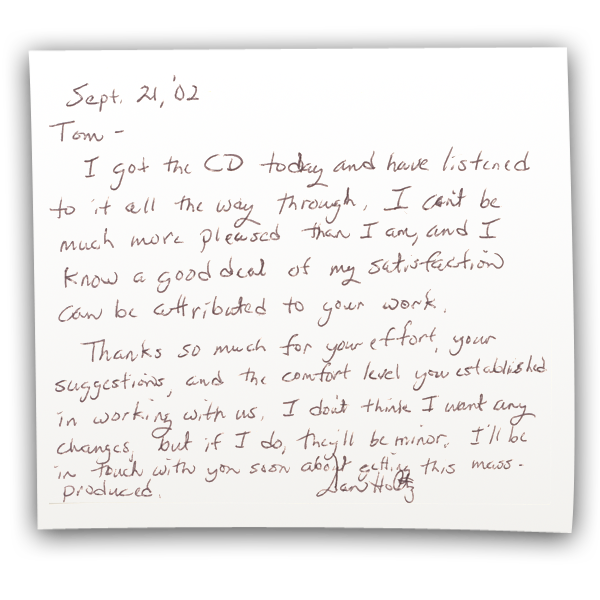 Sept. 21, '02
Tom -
I got the CD today and have listened
to it all the way through. I can't be
much more pleased than I am, and I
know a good deal of my satisfaction
can be attributed to your work.
Thanks so much for your effort, your
suggestions, and the comfort level you established
in working with us. I don't think I want any
changes, but if I do, they'll be minor. I'll be
in touch with you soon about getting this mass-
produced. Dan Holtz